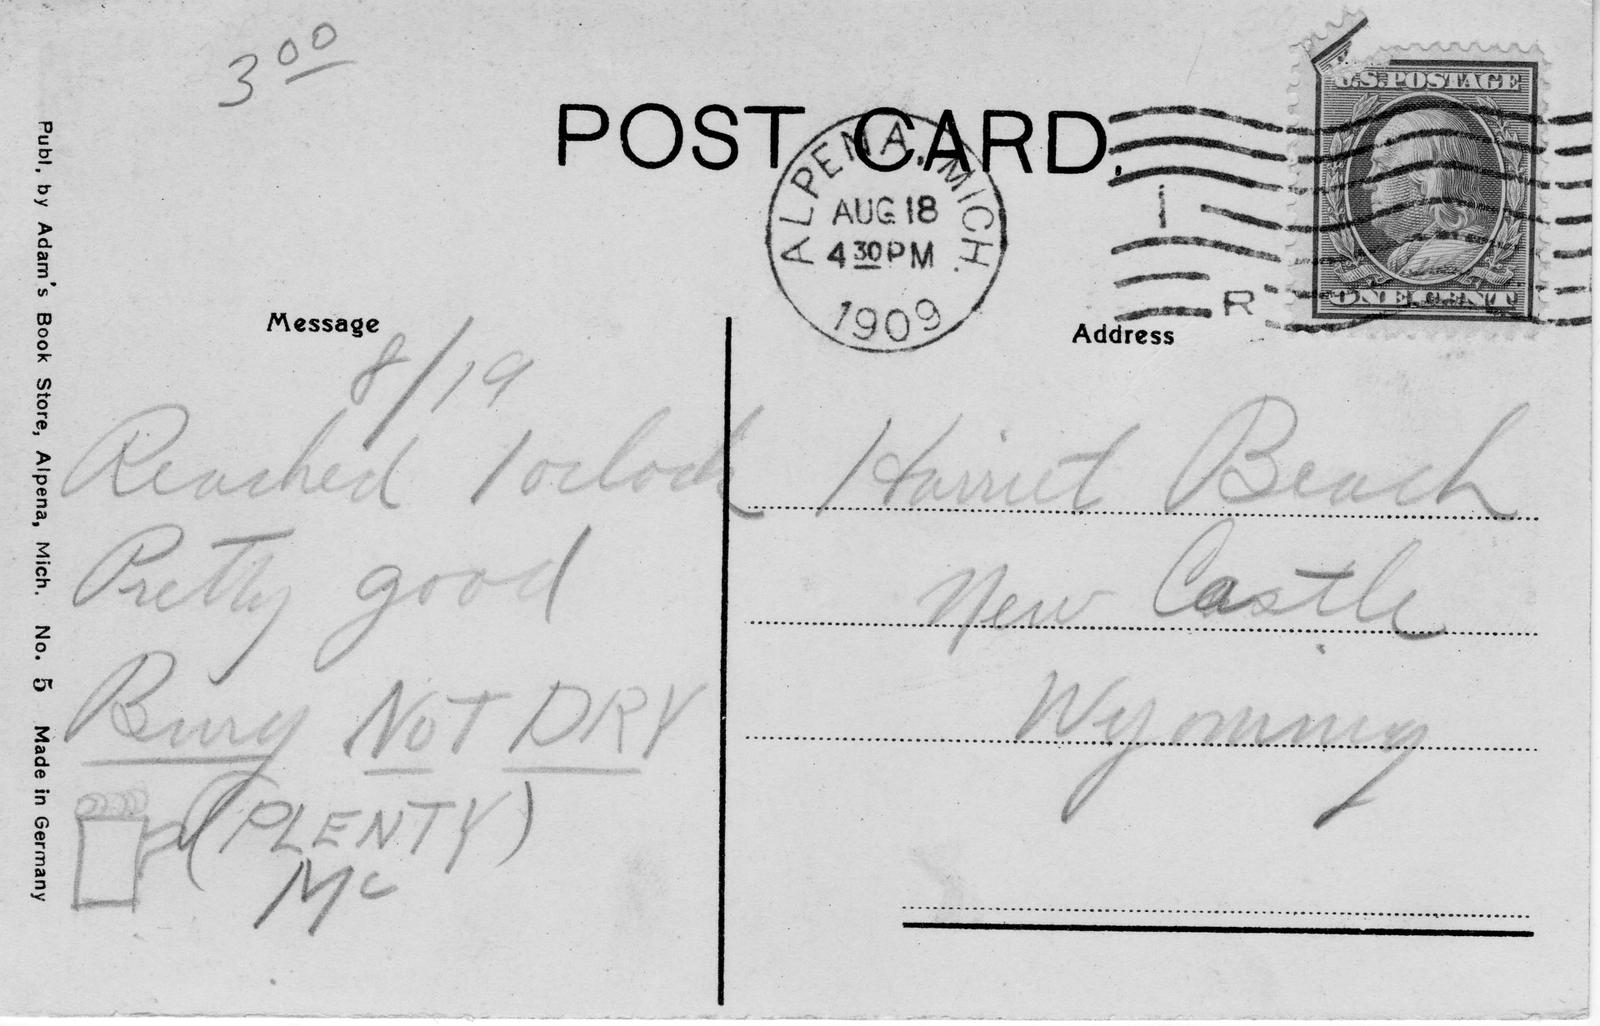 3 00
POST CARD.
U.S. POSTAGE
ALPENA, MICH.
AUG 18
4 30 PM
1909
1
R
ONE CENT
Message
Address
8/19
Reached 1 oclock
Pretty good
NOT DRY
(PLENTY)
Mc
Harriet Beach
New Castle
Wyoming
Publ. by Adam's Book Store, Alpena, Mich. No. 5 Made in Germany